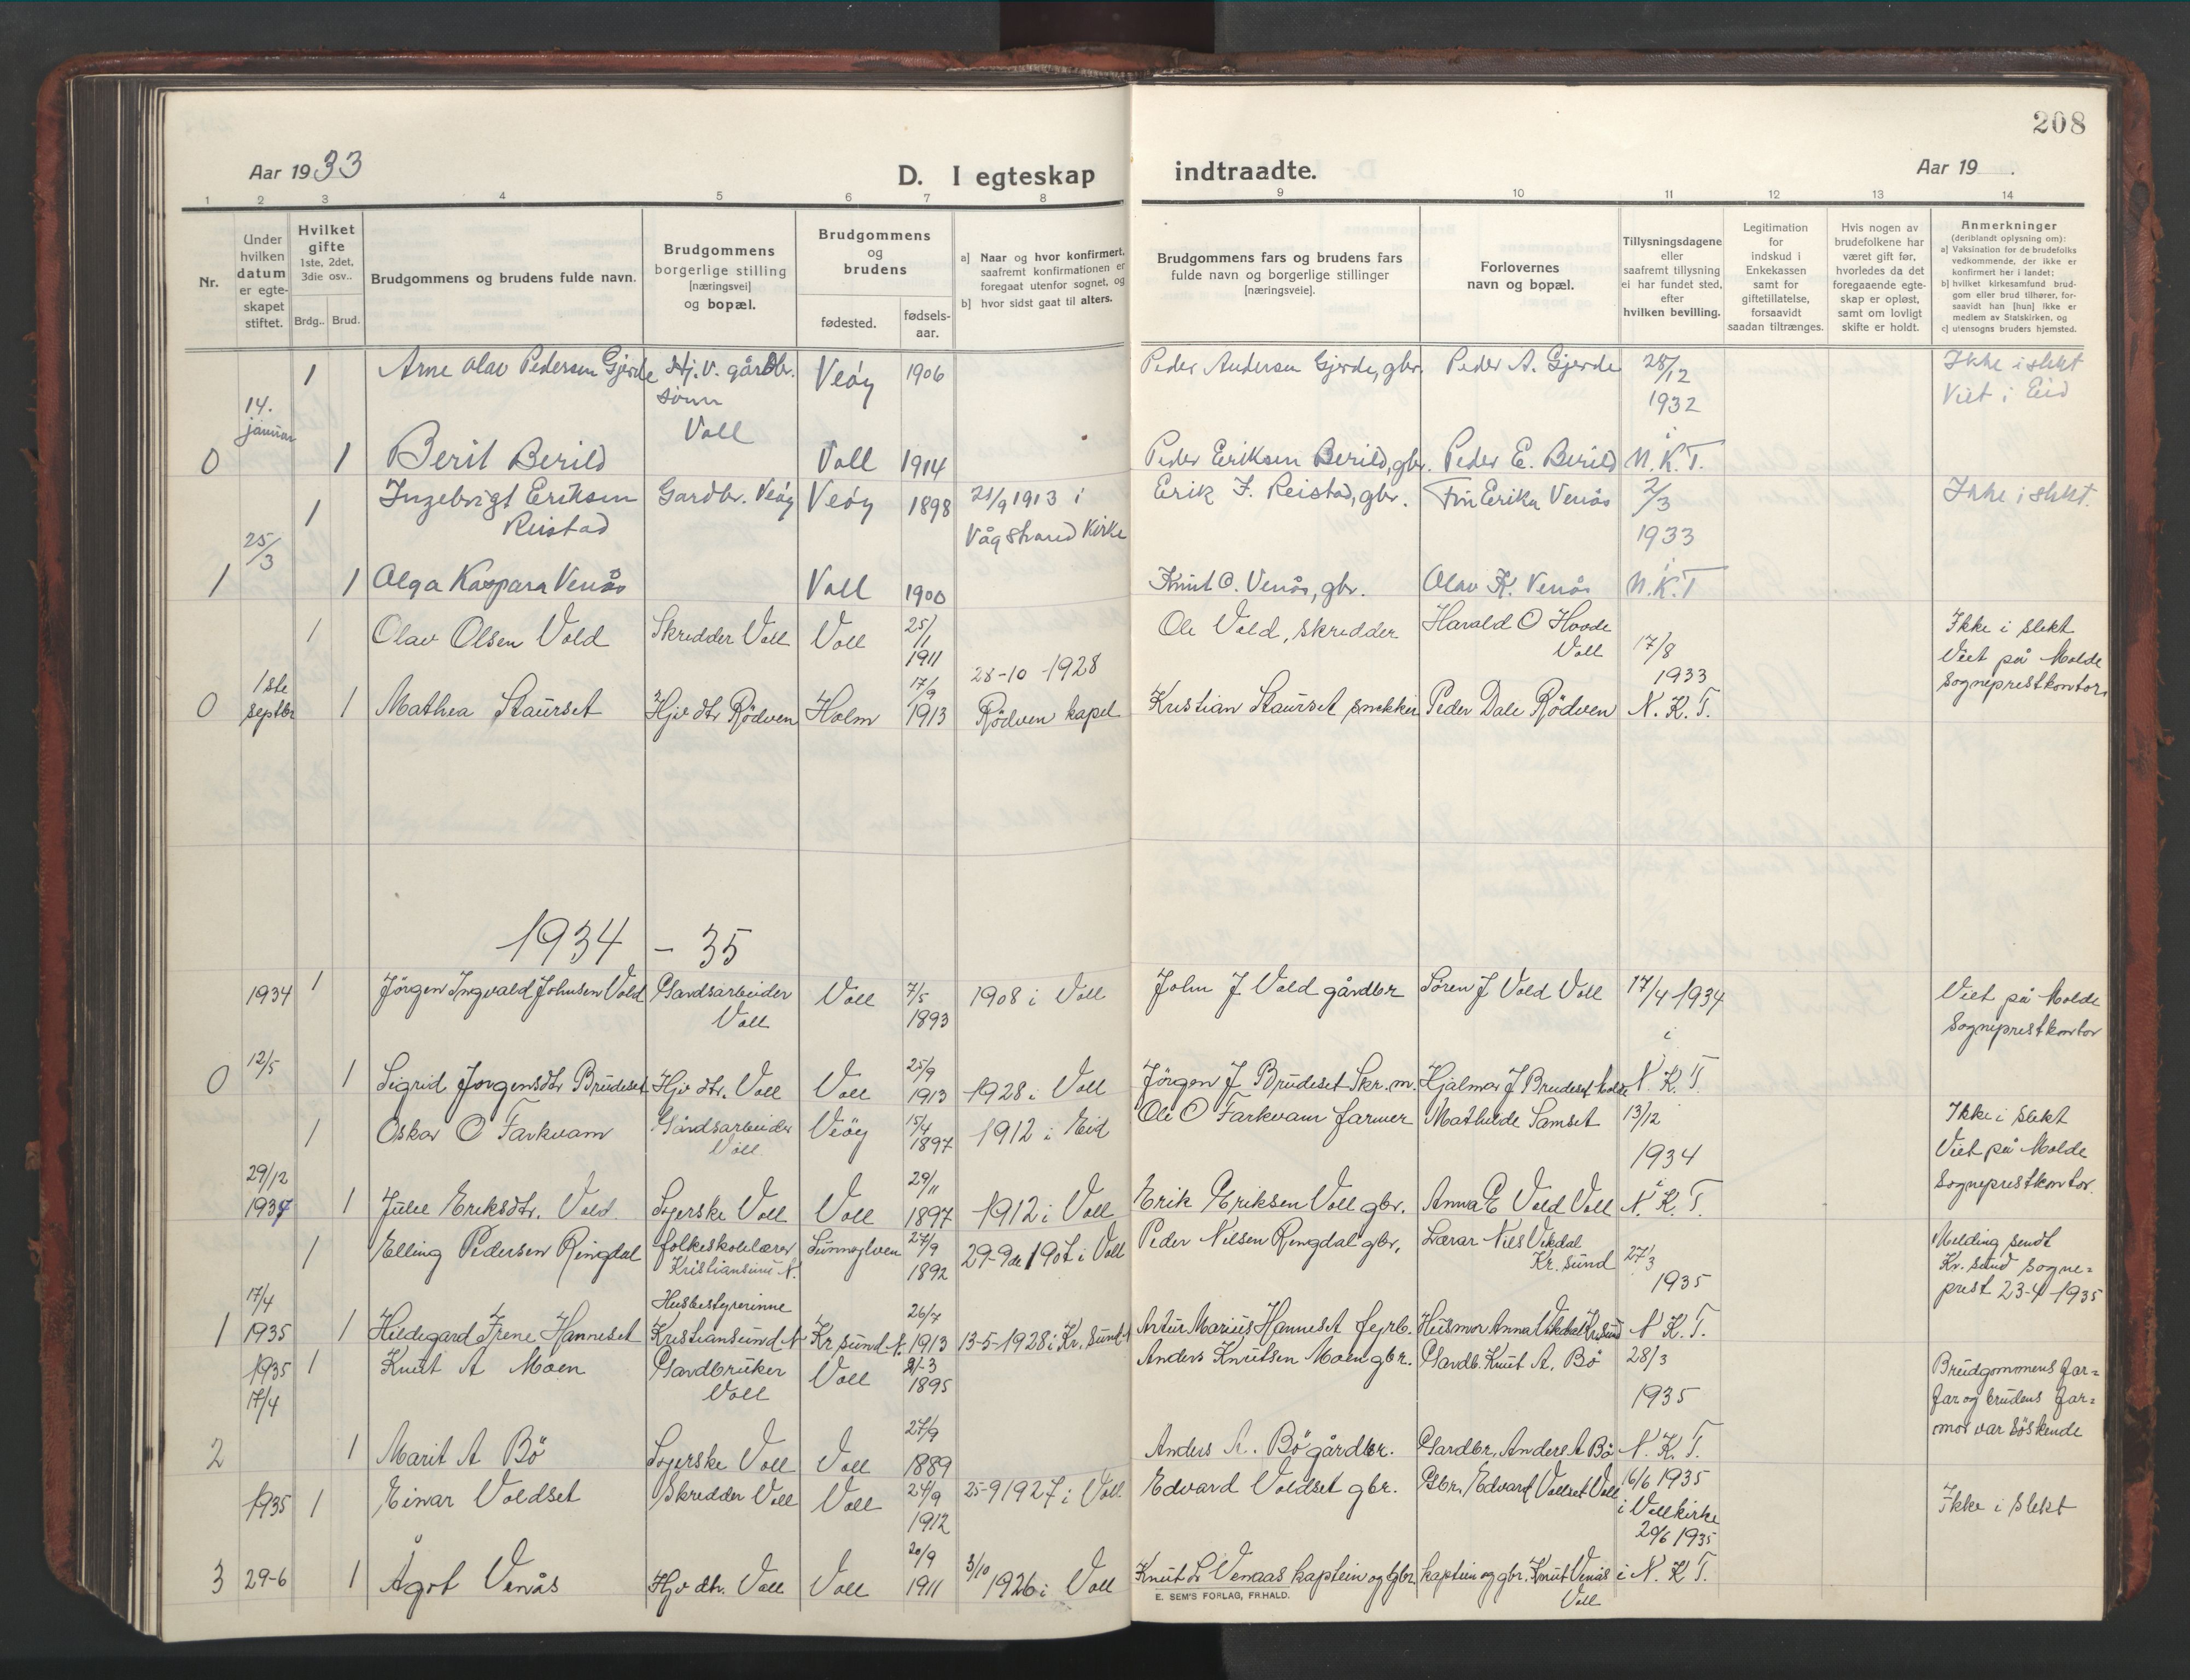 208
Aar 1933
D. I egteskap indtraadte.
Aar 19
1 2 3 4 5 6 7 8 9 10 11 12 13 14
Nr.
Under hvilken datum er egte-skapet stiftet.
Hvilket gifte
1ste, 2det, 3die osv..
Brdg.. Brud.
Brudgommens og brudens fulde navn.
Brudgommens borgerlige stilling [næringsvei] og bopæl.
Brudgommens og brudens
fødested.
fødsels-aar.
a] Naar og hvor konfirmert, saafremt konfirmationen er foregaat utenfor sognet, og
b] hvor sidst gaat til alters.
Brudgommens fars og brudens fars fulde navn og borgerlige stillinger [næringsveie].
Forlovernes navn og bopæl.
Tillysningsdagene eller saafremt tillysning ei har fundet sted, efter hvilken bevilling.
Legitimation for indskud i Enkekassen samt for giftetillatelse, forsaavidt saadan tiltrænges.
Hvis nogen av brudefolkene har været gift før, hvorledes da det foregaaende egte-skap er opløst, samt om lovligt skifte er holdt.
Anmerkninger
(deriblandt oplysning om):
a] Vaksination for de brudefolks vedkommende, der ikke er konfirmert her i landet;
b] hvilket kirkesamfund brud-gom eller brud tilhører, for-saavidt han [hun] ikke er medlem av Statskirken, og
c] utensogns bruders hjemsted.
1 Arne Olav Pedersen Gjerde Hj. v. gårdbr. sønn Voll Veöy 1906 Peder Andersen Gjerde, gbr. Peder A. Gjerde 28/12 1932 i Ikke i slekt Viet i Eid
0 14. januar 1 Berit Berild Voll 1914 Peder Eriksen Berild, gbr. Peder E. Berild N.K.T.
1 Ingebrigt Eriksen Reistad Gardbr. Veöy Veöy 1898 21/9 1913 i Vågstrand Kirke Erik J. Reistad, gbr. Frü Erika Venås 2/3 1933 i Ikke i slekt.
1 25/3 1 Olga Kaspara Venås Voll 1900 Knut O. Venås, gbr. Olav K. Venås N.K.T
1 Olav Olsen Vold Skredder Voll Voll 25/1 1911 Ole Vold, skredder Harald O Hovde Voll 17/8 1933 Ikke i slekt Viet på Molde Sogneprestkontor
0 1ste septbr 1 Mathea Staurset Hjv dtr Rödven Holm 17/9 1913 28-10-1928 Rödven kapel Kristian Staurset snekker Peder Dale Rödven N.K.T.
1934 - 35
1934 1 Jörgen Ingvald Johnsen Vold Gardsarbeider Voll Voll 7/5 1893 1908 i Voll John J Vold gårdbr Sören J Vold Voll 17/4 1934 i Viet på Molde Sogneprestkontor
0 12/5 1 Sigrid Jorgensdtr Brudeset Hjv dtr. Voll Voll 25/9 1913 1928 i Voll Jörgen J Brudeset Skr. m. Hjalmar J Brudeset Molde N.K.T.
1 Oskar O Farkvam Gårdsarbeider Voll Veöy 15/4 1897 1912 i Eid Ole O Farkvam farmer Mathilde Samset 13/12 1934 Ikke i slekt Viet på Molde Sogneprestkontor.
29/12 1934 1 Julie Eriksdtr. Vold Syerske Voll Voll 29/11 1897 1912 i Voll Erik Eriksen Voll gbr. Anna E Vold Voll N.K.T.
1 Elling Pedersen Ringdal folkeskolelærer Kristiansund N. Sunnylven 27/9 1892 29-9de 1907 i Voll Peder Nilsen Ringdal gbr, Lærar Nils Vikdal Kr. sund 27/3 1935 Melding sendt Kr. sund sogne= prest 23-4 1935
1 17/4 1935 1 Hildegard Irene Hanneset Husbestyrerinne Kristiansund N Kr. sund. N. 26/7 1913 13-5-1928 i Kr. sund N Artur Marius Hanneset fejrb. Husmor Anna Vikdal Kr sund N K.T.
1935 17/4 1 Knut A Moen Gardbruker Voll Voll 21-3 1895 Anders Knutsen Moen gbr. Gardb. Knut A. Bö 28/3 1935 Brudgommens far= far og brudens far= mor var söskende
2 1 Marit A Bö Syerske Voll Voll 27/9 1889 Anders A. Bö gårdbr. Gardbr, Anders A Bö N.K.T.
1935 1 Einar Voldset Skredder Voll Voll 24/9 1912 25-9 1927 i Voll Edvard Voldset gbr. Gbr, Edvard Vollset Voll 16/6 1935 i Voll kirke 20/6 1935 Ikke i slekt
3 29-6 1 Ågot Venås Hjv dtr. Voll Voll 20/9 1911 3/10 1926 i Voll Knut Venaas kaptein og gbr. kaptein og gbr. Knut Venås Voll i N.K.T.
E. SEM'S FORLAG, FR.HALD.